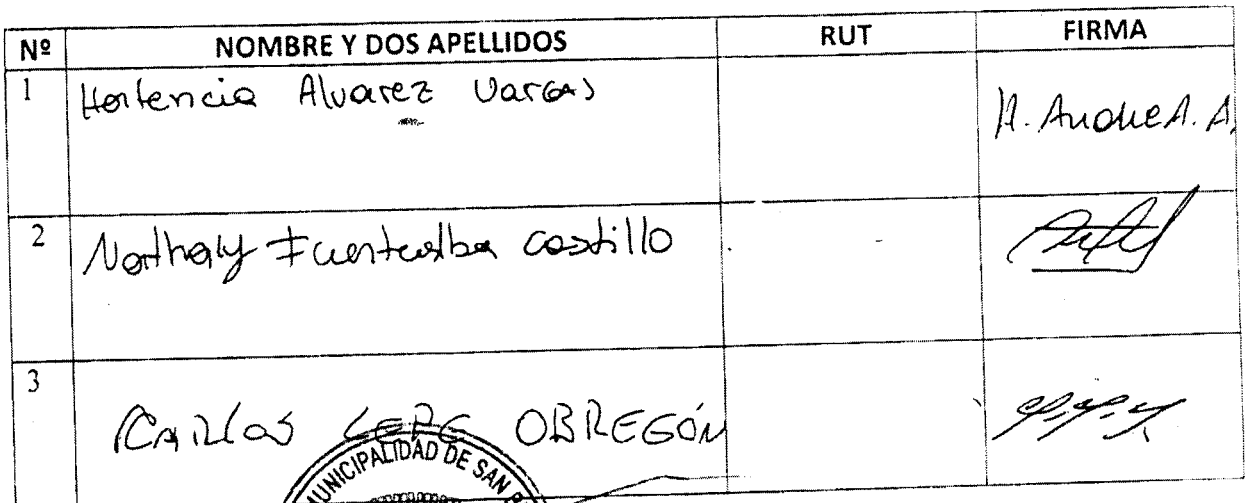 Nº NOMBRE Y DOS APELLIDOS RUT FIRMA
1 Hortencia Alvarez Vargas
2 Nathaly Fuentealba Castillo
3 CARLOS LEPE OBREGÓN
MUNICIPALIDAD DE SAN